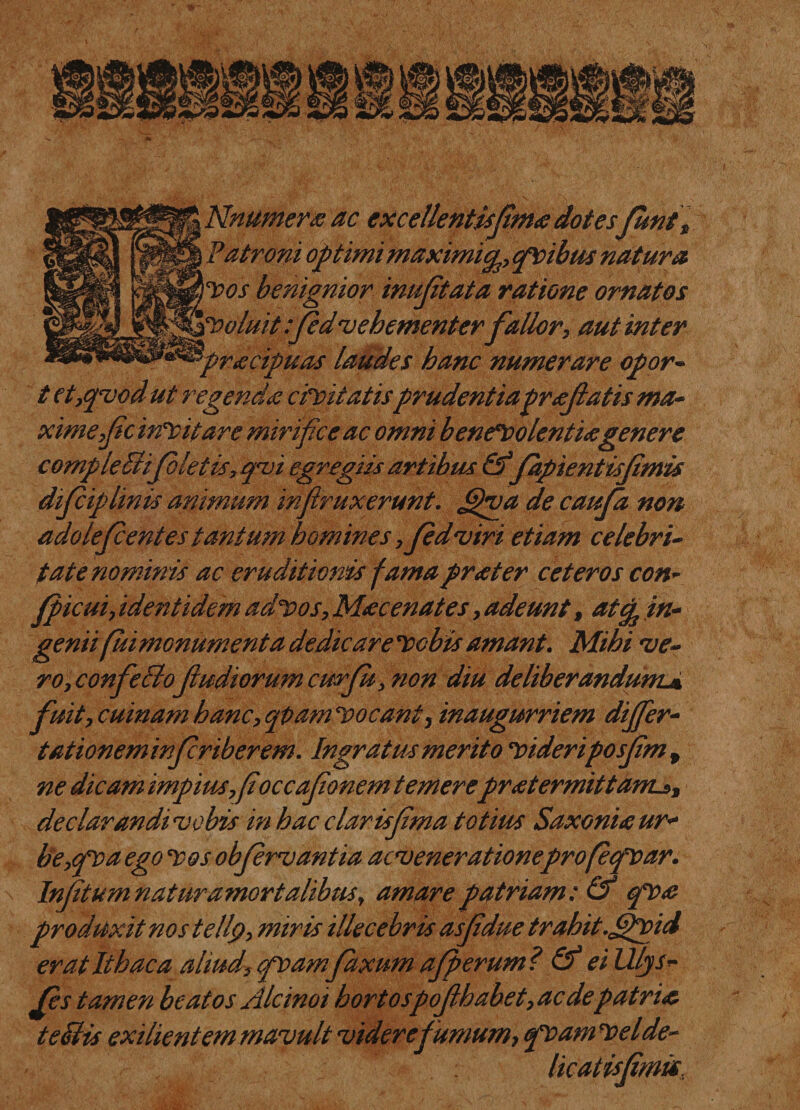 INnumeræ ac excellentisſimæ dotes ſunt,
Patroni optimi maximiq́;, qvibus natura
vos benignior inuſitata ratione ornatos
voluit: ſed vehementer fallor, aut inter
præcipuas laudes hanc numerare opor-
tet, qvod ut regendæ civitatis prudentia præſtatis ma-
xime, ſic invitare mirifice ac omni benevolentiæ genere
complecti ſoletis, qvi egregiis artibus & ſapientisſimis
diſciplinis animum inſtruxerunt. Qva de cauſa non
adoleſcentes tantum homines, ſed viri etiam celebri-
tate nominis ac eruditionis fama præter ceteros con-
ſpicui, identidem ad vos, Mæcenates, adeunt, atq́; in-
genii ſui monumenta dedicare vobis amant. Mihi ve-
ro, confecto ſtudiorum curſu, non diu deliberandum
fuit, cuinam hanc, qvam vocant, inaugurriem diſſer-
tationem inſcriberem. Ingratus merito videri posſim,
ne dicam impius, ſi occaſionem temere prætermittam,
declarandi vobis in hac clarisſima totius Saxoniæ ur-
be, qva ego vos obſervantia ac veneratione proſeqvar.
Inſitum natura mortalibus, amare patriam: & qvæ
produxit nos tellꝰ, miris illecebris asſidue trahit. Qvid
erat Ithaca aliud, qvam ſaxum aſperum? & ei Ulyſ-
ſes tamen beatos Alcinoi hortos poſthabet, ac de patriæ
tectis exilientem mavult videre fumum, qvam vel de-
licatisſimis